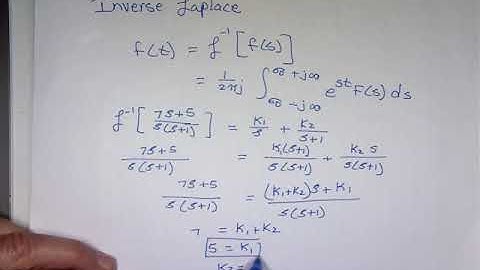 Inverse Laplace
f(t) = ℒ⁻¹[f(s)]
= 1/2πj ∫_{σ-j∞}^{σ+j∞} e^{st} F(s) ds
ℒ⁻¹[7s+5 / s(s+1)] = K₁/s + K₂/s+1
7s+5 / s(s+1) = K₁(s+1) / s(s+1) + K₂ s / s(s+1)
7s+5 / s(s+1) = (K₁+K₂)s + K₁ / s(s+1)
7 = K₁+K₂
5 = K₁
K₂ =